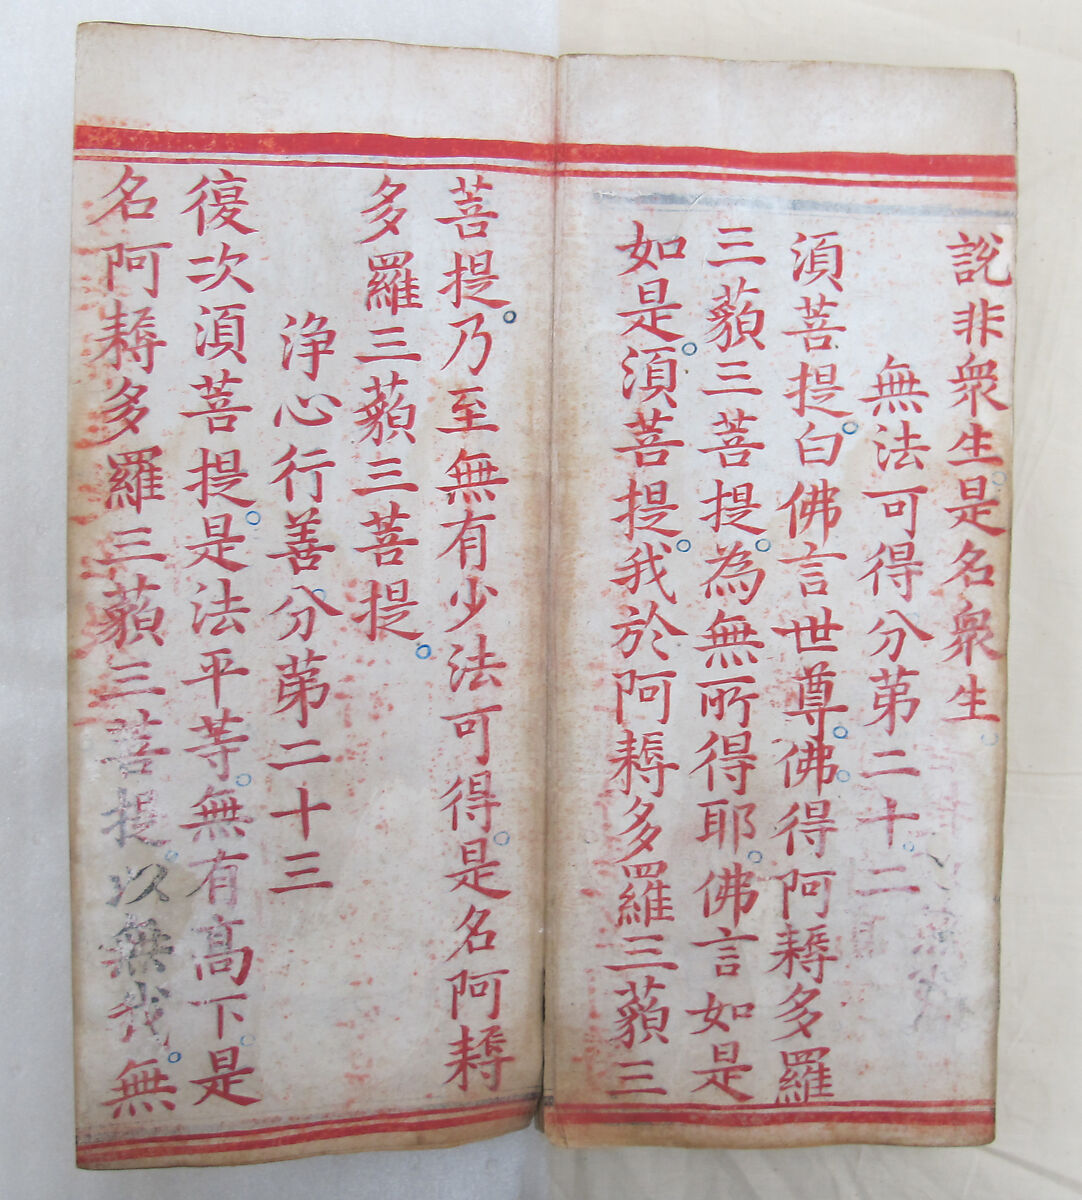 說非衆生是名衆生
無法可得分第二十二
湏菩提白佛言世尊佛得阿耨多羅
三藐三菩提為無所得耶佛言如是
如是湏菩提我於阿耨多羅三藐三
菩提乃至無有少法可得是名阿耨
多羅三藐三菩提
淨心行善分第二十三
復次湏菩提是法平等無有高下是
名阿耨多羅三藐三菩提以無我無